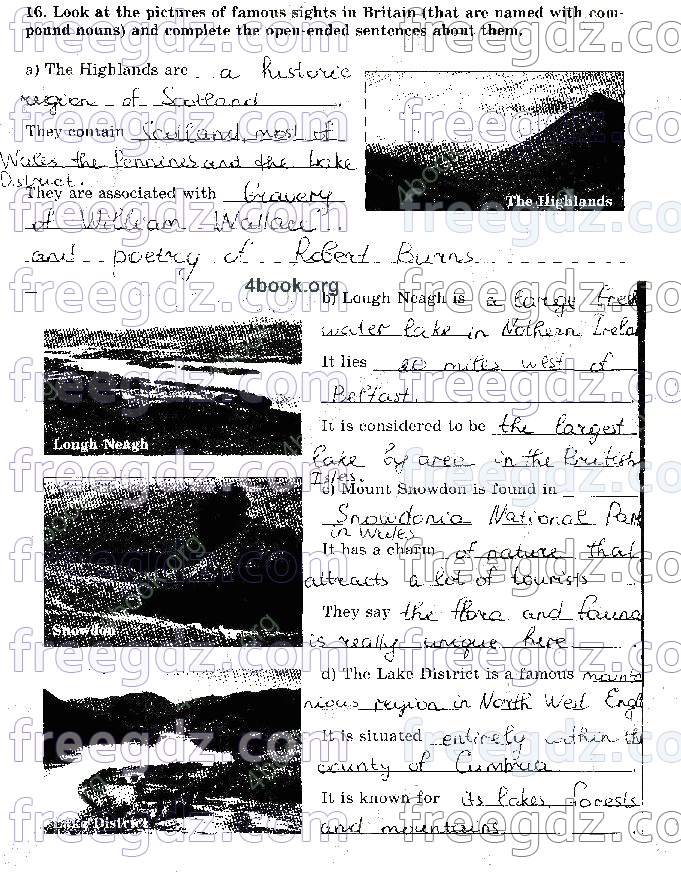 16. Look at the pictures of famous sights in Britain (that are named with com-
pound nouns) and complete the open-ended sentences about them.
a) The Highlands are a historic
region of Scotland.
They contain Scotland, most of
Wales the Pennines and the Lake
District.
They are associated with bravery
of William Wallace
The Highlands
and poetry of Robert Burns
4book.org
b) Lough Neagh is a large fresh
water lake in Nothern Irelan
It lies 20 miles west of
Belfast.
It is considered to be the largest
Lough Neagh
lake by area in the British
Isles.
c) Mount Snowdon is found in
Snowdonia National Park
in Wales
It has a charm of nature that
attracts a lot of tourists
They say the flora and fauna
Snowdon
is really unique here
d) The Lake District is a famous mount
nious region in North West Engl
It is situated entirely within the
county of Cumbria
It is known for its lakes, forests
and mountains.
Lake District
freegdz.com
4book.org